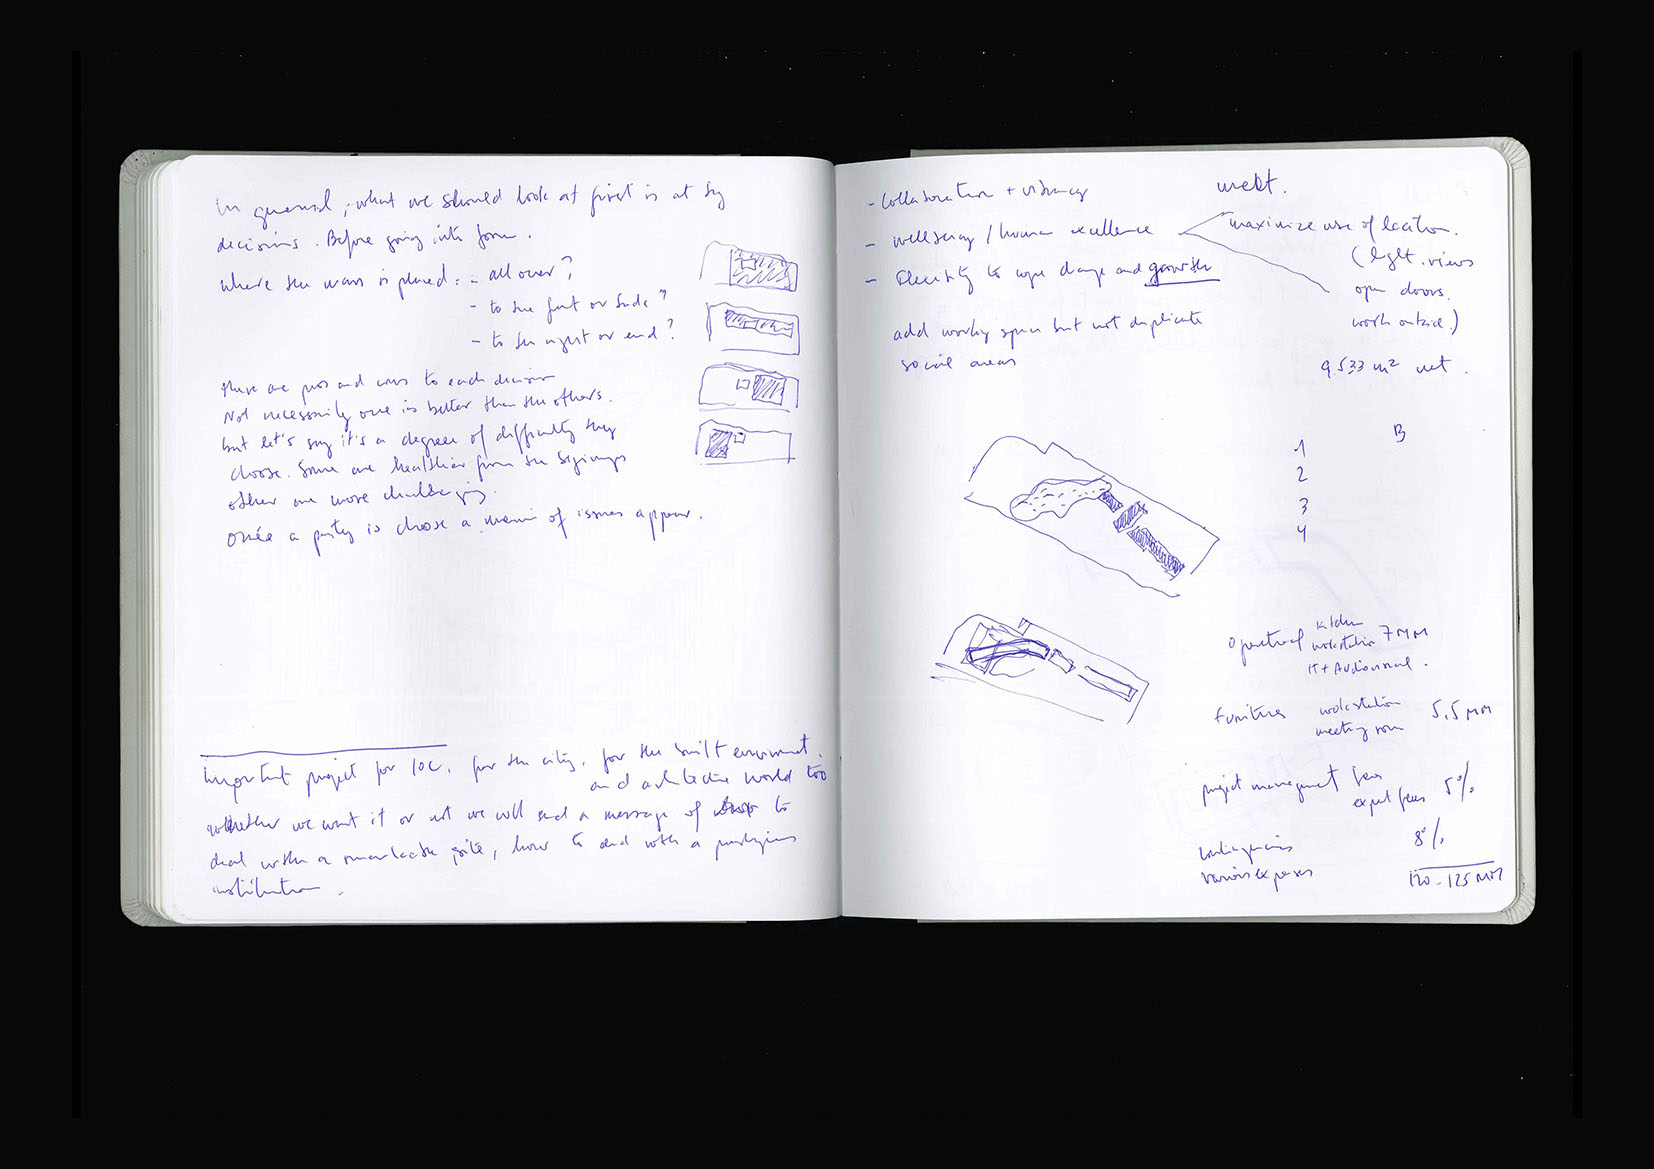 In general, what we should look at first is at big
decisions. Before going into form.
where the mass is placed: - all over?
- to the front or side?
- to the or end?
There are pros and cons to each decision
Not necessarily one is better than the others.
but let's say it's a degree of difficulty they
choose. Some are healthier from the beginnings
other are more challenging.
once a is choose a of issues appear.
Important project for IOC, for the city, for the built enviroment.
and architecture world too
whether we want it or not we will send a message of how to
deal with a site, how to deal with a prestigious
institution.
- collaboration + vibrancy
- wellbeing / human excellence
- Flexibility to cope change and growth
add working space but not duplicate
social areas
maximize use of location.
(light. views
open doors.
work outside.)
9.533 m² net.
B
1
2
3
4
operational kitchen
workstation 7 MM
IT + Audiovisual.
furnitures workstation 5,5 MM
meeting room
project management fees
expert fees 5%
contingencies 8%
various expenses
120-125 MM